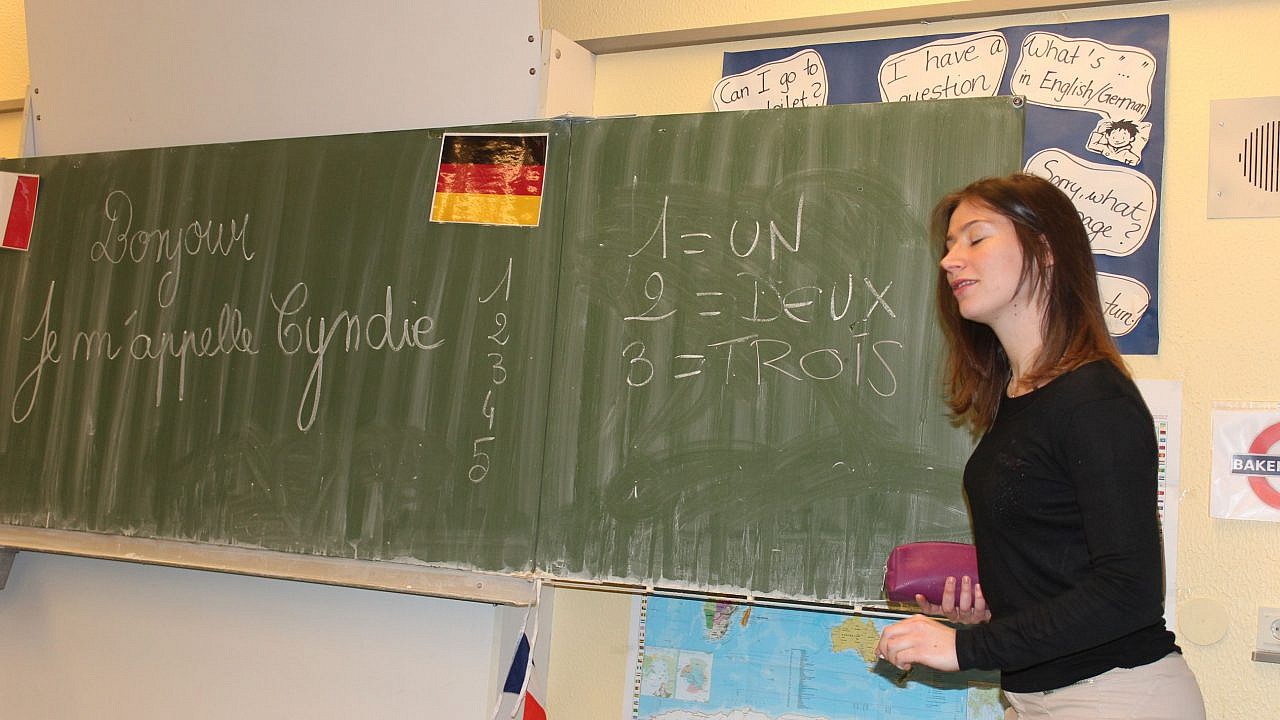 Bonjour
Je m'appelle Cyndie
1
2
3
4
5
1 = UN
2 = DEUX
3 = TROIS
Can I go to
toilet?
I have a
question
What's "..."
in English/German
Sorry, what
page?
BAKE